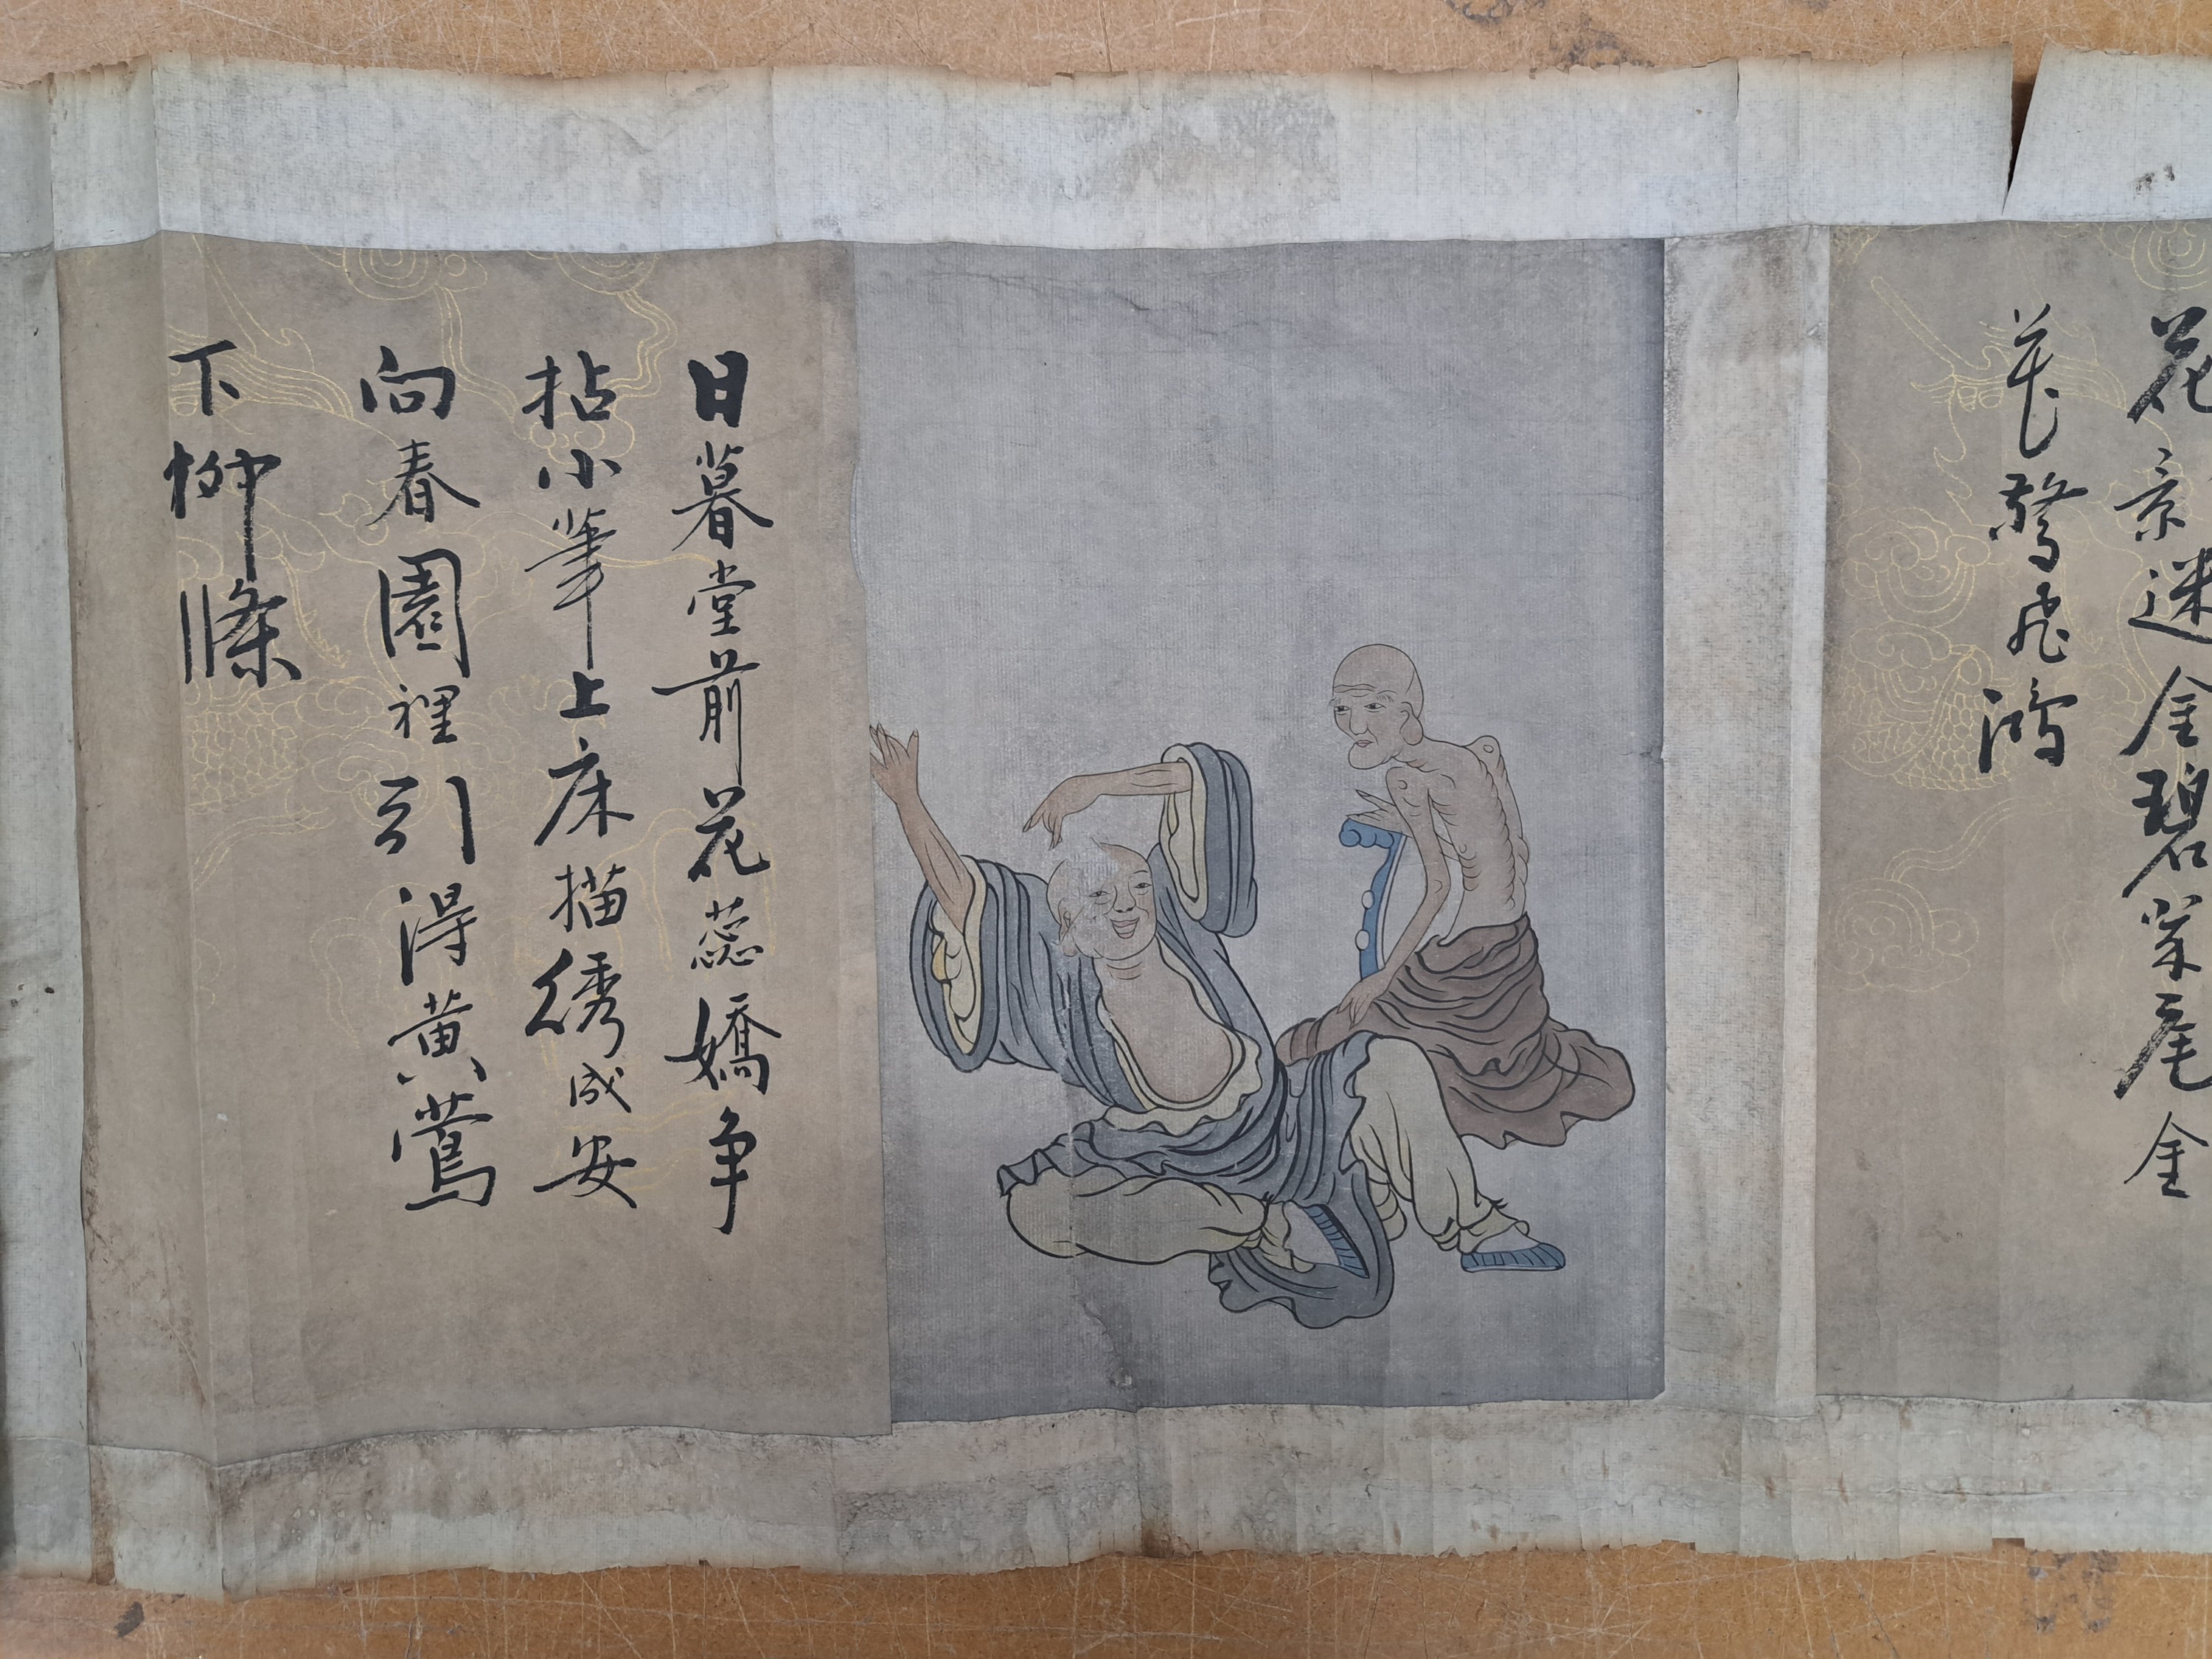 花迷金碧尾金
驚飛鴻
日暮堂前花蕊嬌争
拈小筆上床描綉成安
向春園裡引得黄鶯
下柳條